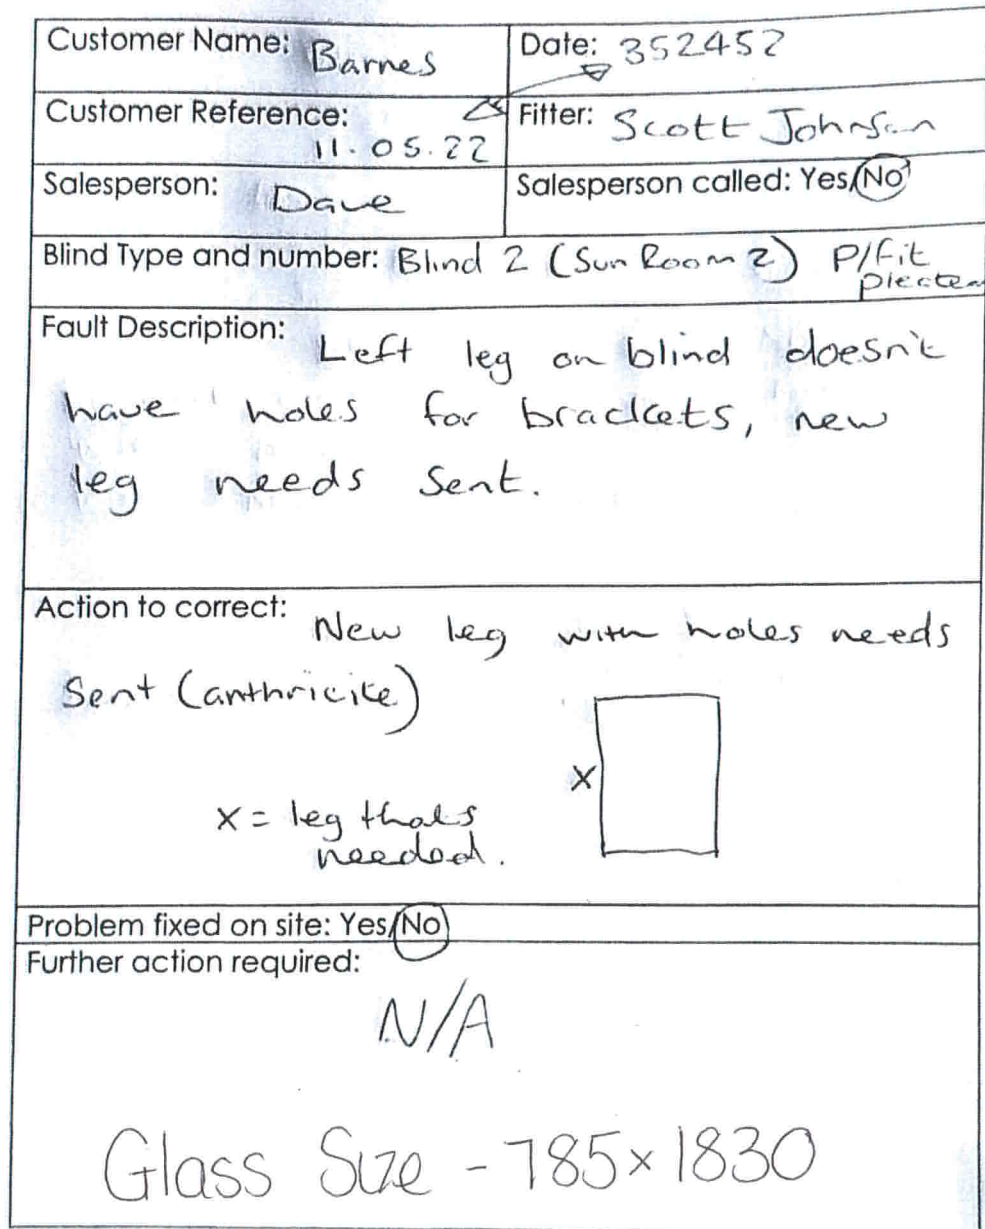 Customer Name: Barnes
Date: 352452
Customer Reference: 11.05.22
Fitter: Scott Johnson
Salesperson: Dave
Salesperson called: Yes/No
Blind Type and number: Blind 2 (Sun Room 2) P/fit
Fault Description: Left leg on blind doesn't
have holes for brackets, new
leg needs Sent.
Action to correct: New leg with holes needs
Sent (anthricite)
X
X = leg thats
needed.
Problem fixed on site: Yes/No
Further action required:
N/A
Glass Size - 785x1830